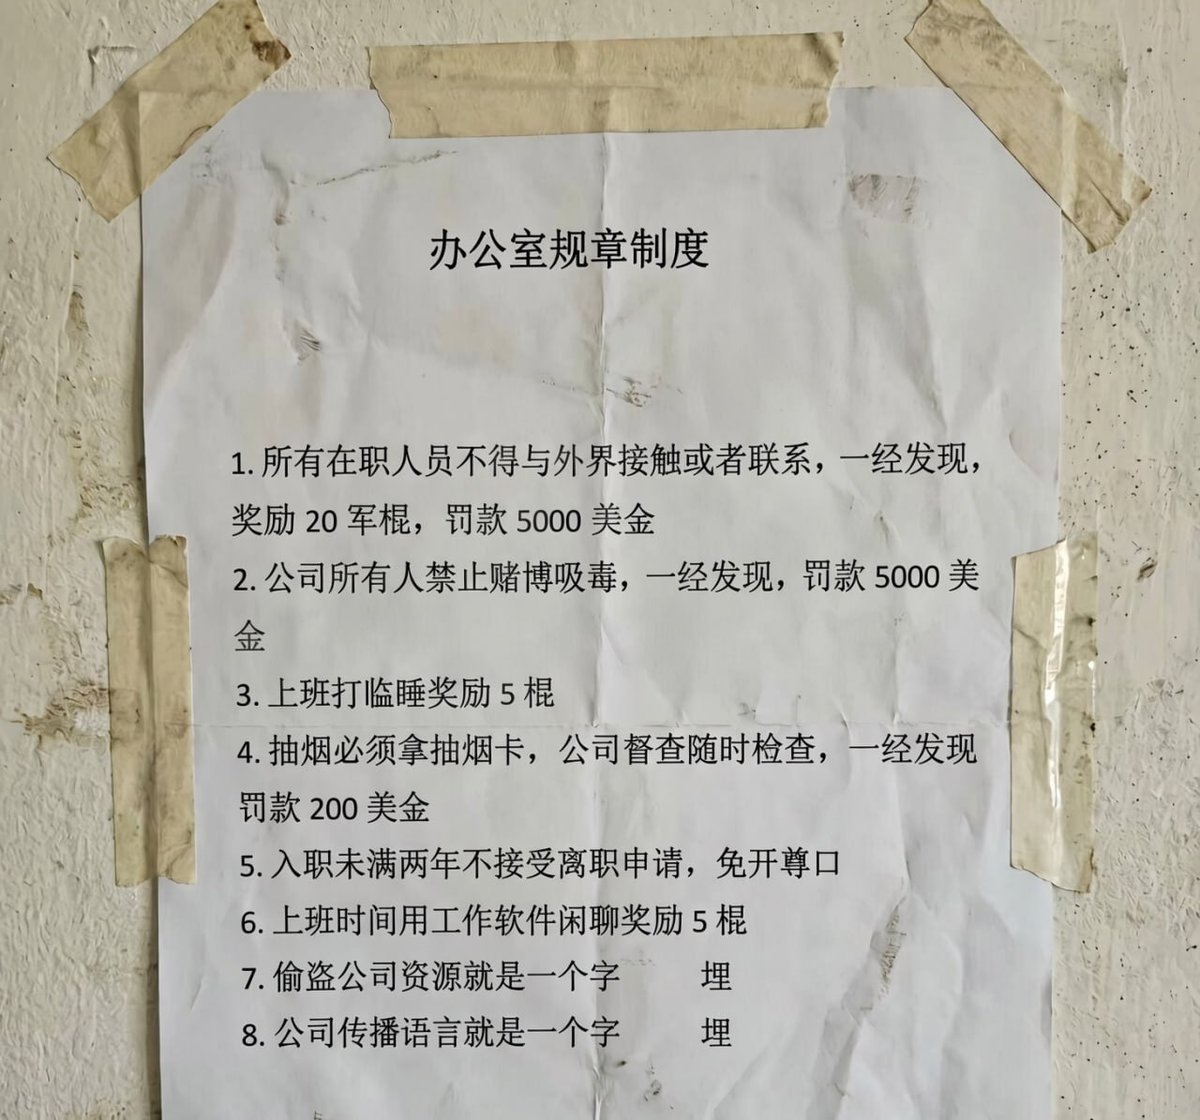 办公室规章制度
1. 所有在职人员不得与外界接触或者联系，一经发现，
奖励 20 军棍，罚款 5000 美金
2. 公司所有人禁止赌博吸毒，一经发现，罚款 5000 美
金
3. 上班打临睡奖励 5 棍
4. 抽烟必须拿抽烟卡，公司督查随时检查，一经发现
罚款 200 美金
5. 入职未满两年不接受离职申请，免开尊口
6. 上班时间用工作软件闲聊奖励 5 棍
7. 偷盗公司资源就是一个字 埋
8. 公司传播语言就是一个字 埋